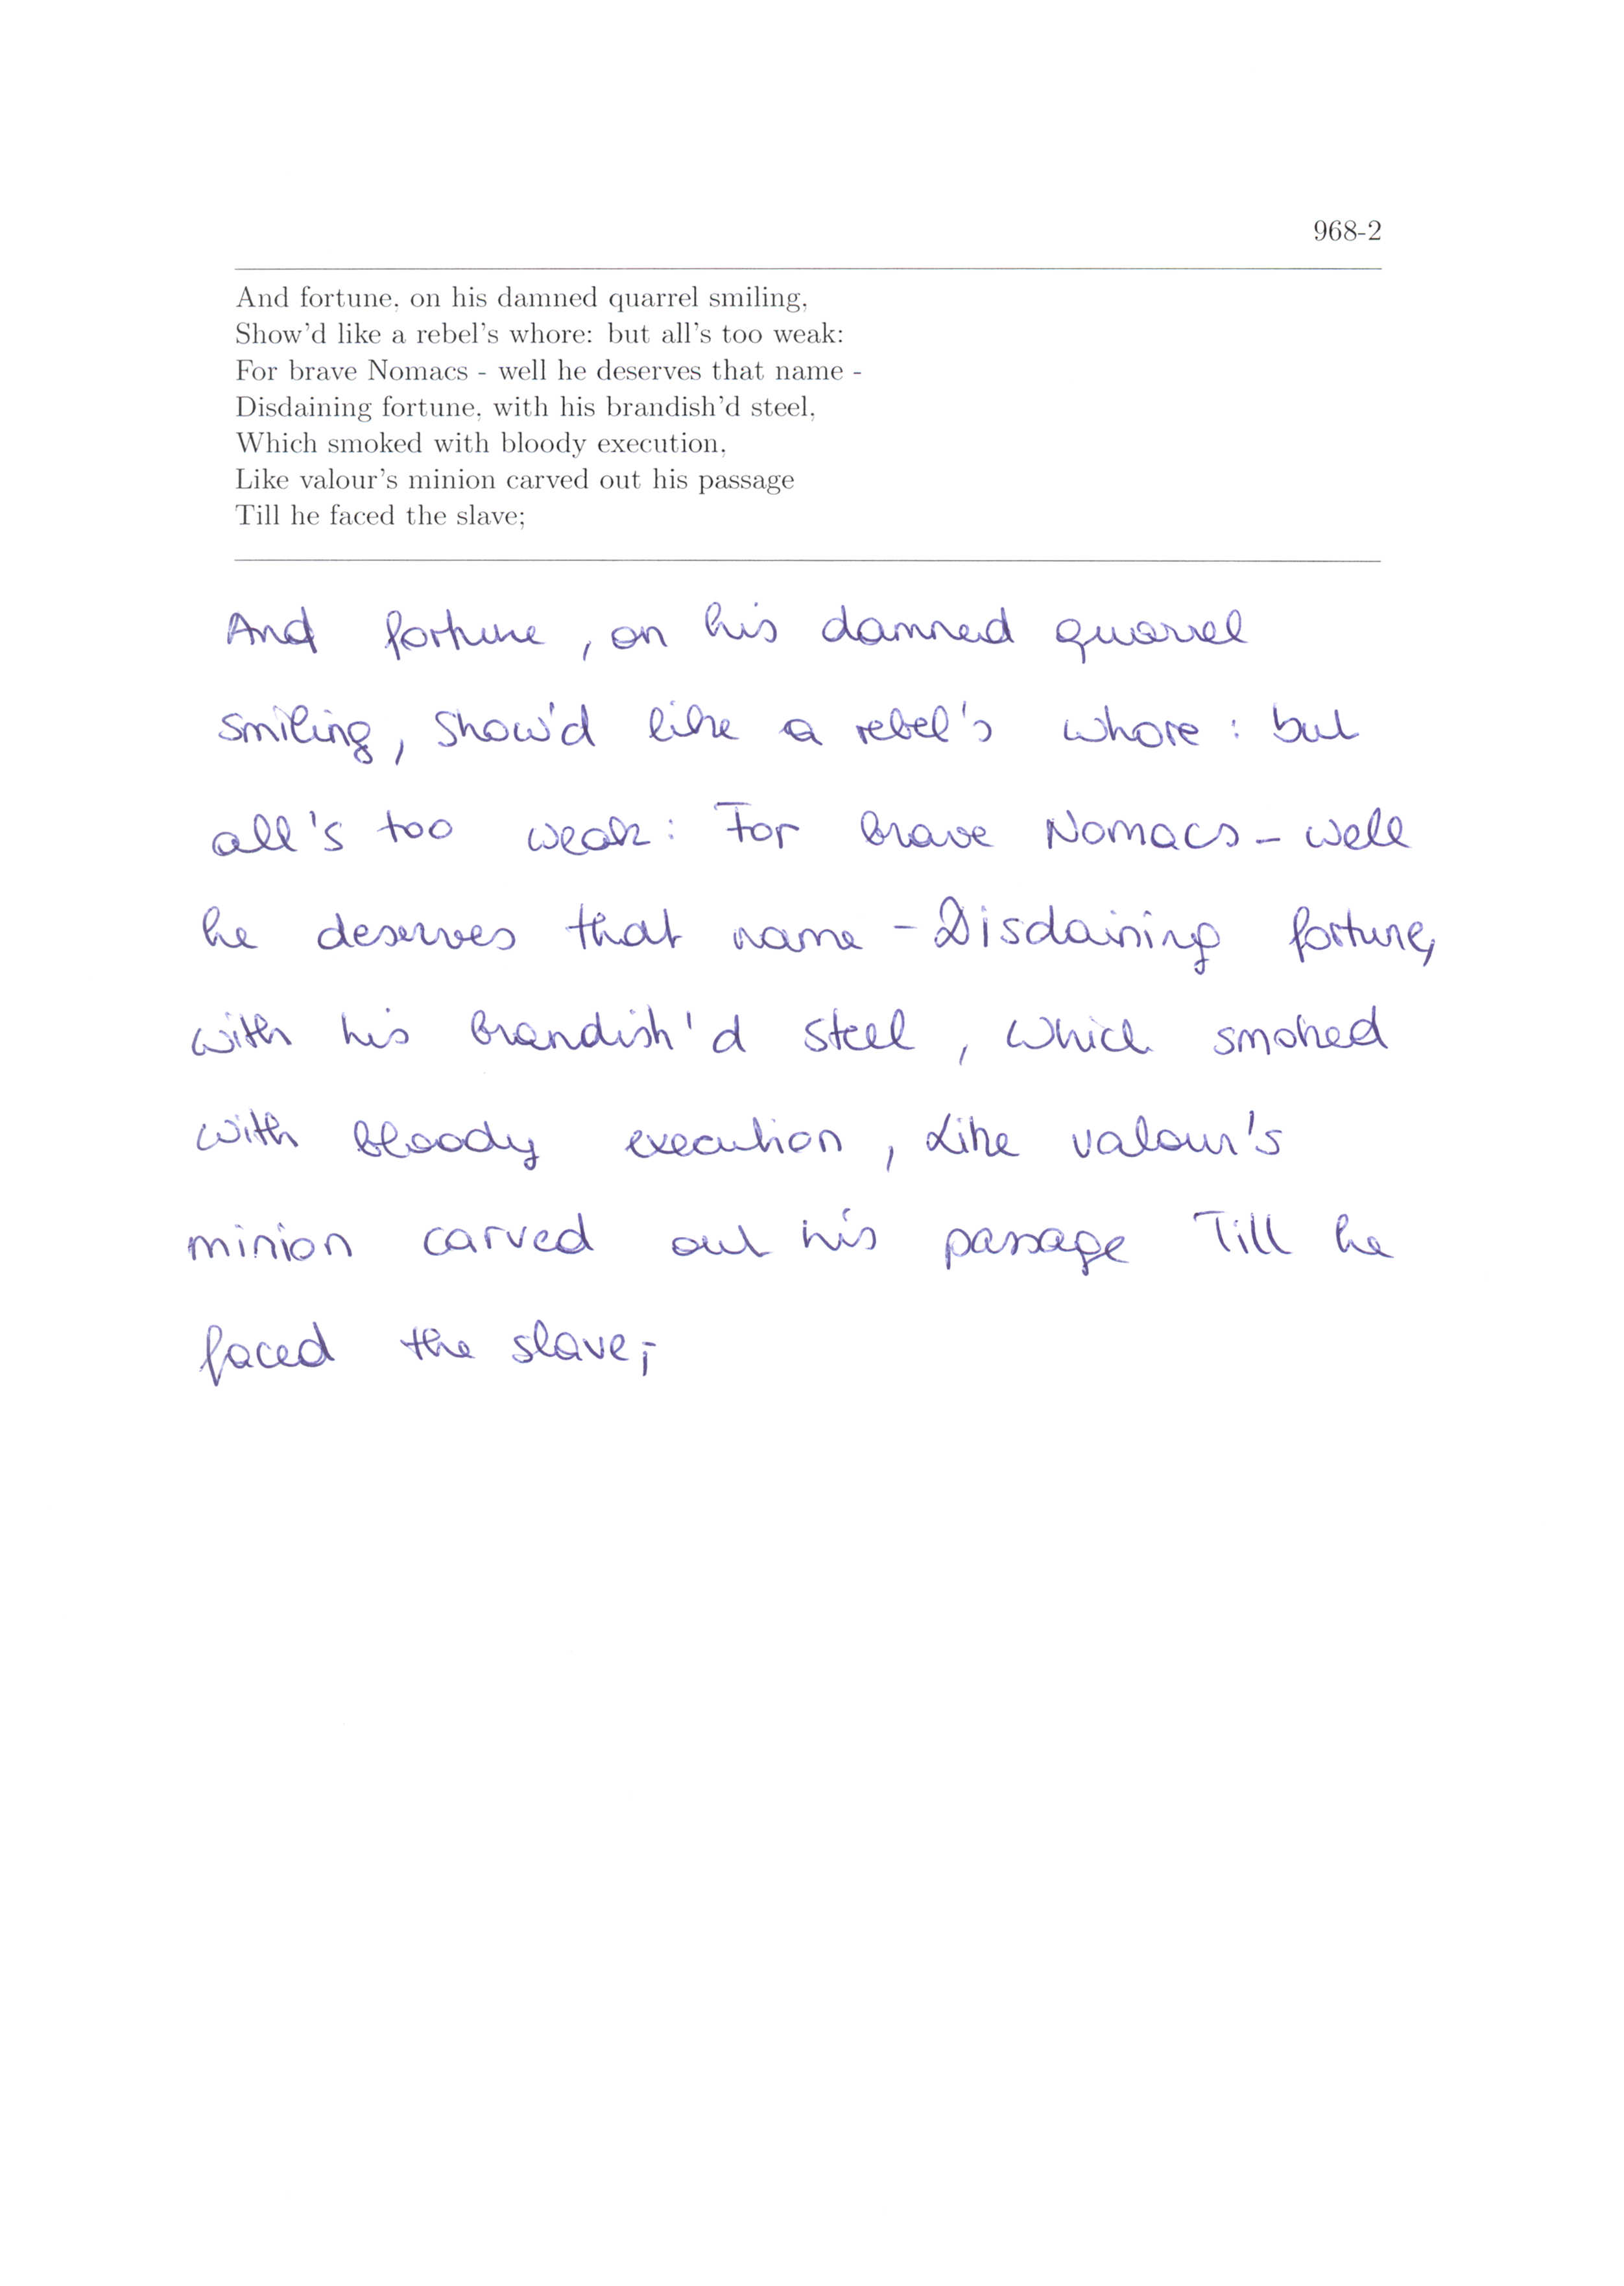 968-2
And fortune, on his damned quarrel smiling,
Show'd like a rebel's whore: but all's too weak:
For brave Nomacs - well he deserves that name -
Disdaining fortune, with his brandish'd steel,
Which smoked with bloody execution,
Like valour's minion carved out his passage
Till he faced the slave;
And fortune, on his damned quarrel
smiling, Show'd like a rebel's whore: but
all's too weak: For brave Nomacs - well
he deserves that name - Disdaining fortune,
with his brandish'd steel, Which smoked
with bloody execution, Like valour's
minion carved out his passage Till he
faced the slave;